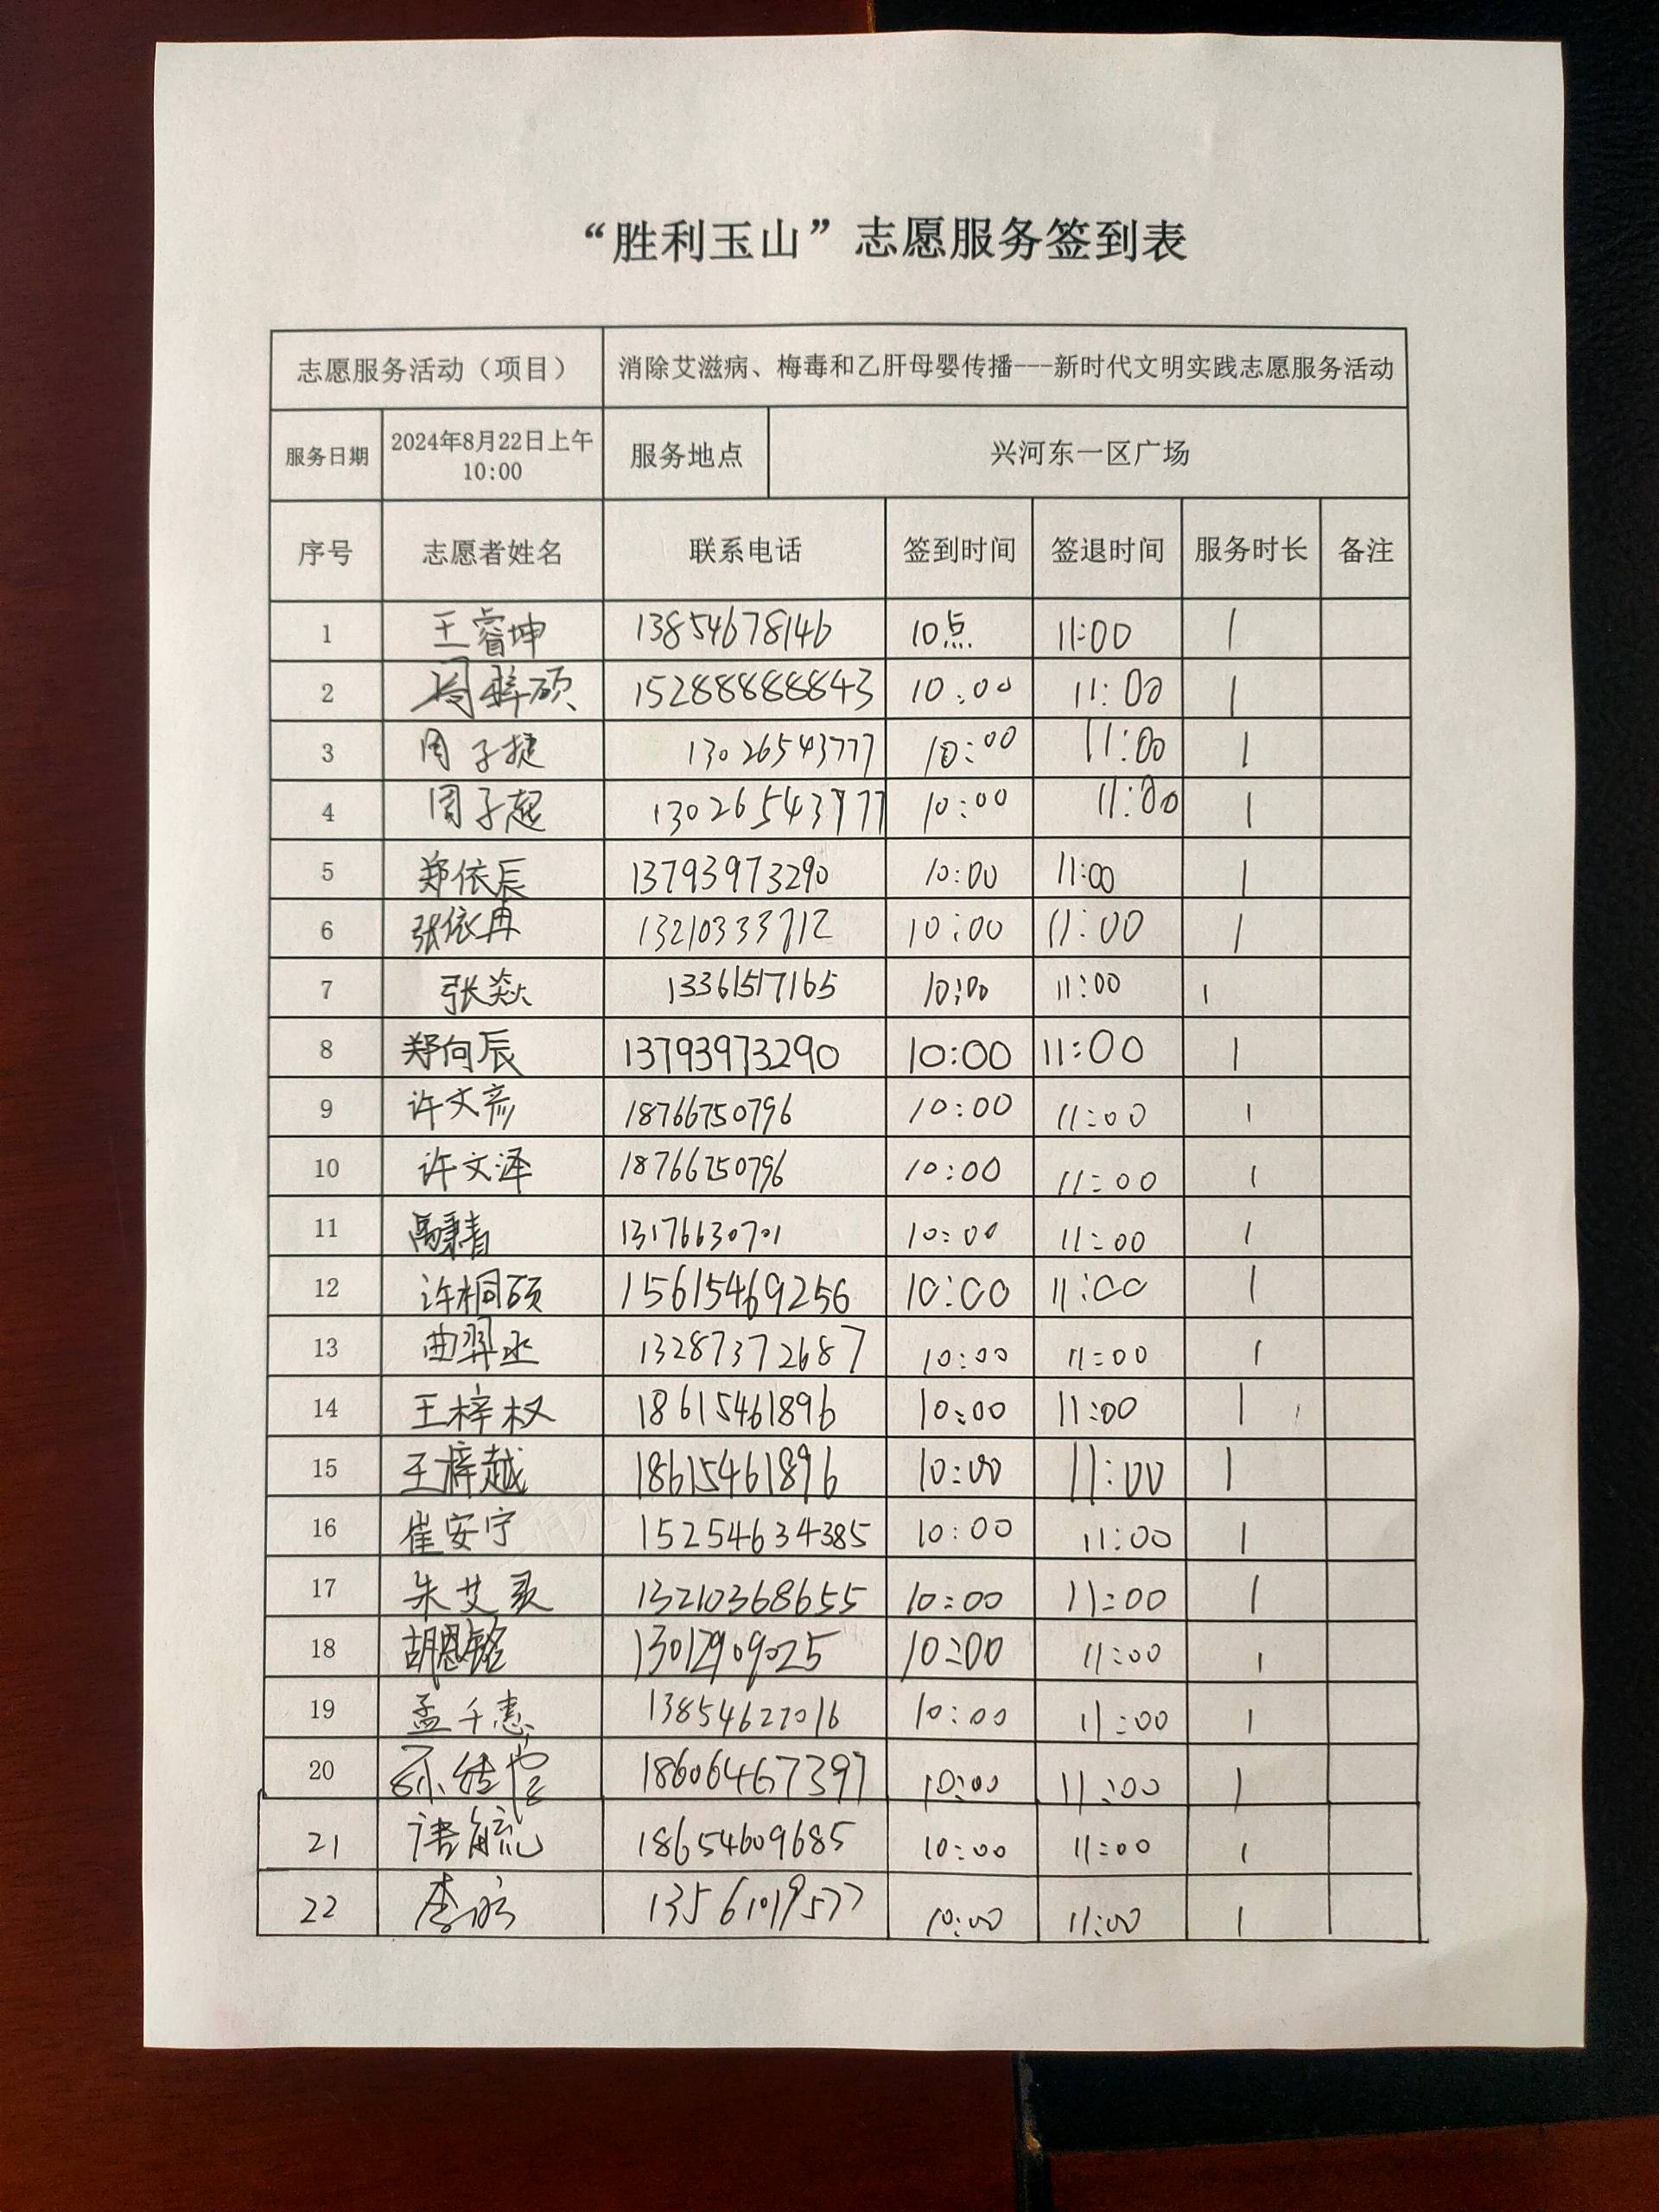 “胜利玉山”志愿服务签到表
志愿服务活动（项目） 消除艾滋病、梅毒和乙肝母婴传播---新时代文明实践志愿服务活动
服务日期 2024年8月22日上午10:00 服务地点 兴河东一区广场
序号 志愿者姓名 联系电话 签到时间 签退时间 服务时长 备注
1 王睿坤 13854678146 10点 11:00 1
2 周梓硕 15288888843 10:00 11:00 1
3 周子捷 13026543777 10:00 11:00 1
4 周子起 13026543777 10:00 11:00 1
5 郑依辰 13793973290 10:00 11:00 1
6 张依冉 13210333712 10:00 11:00 1
7 张焱 13361517165 10:00 11:00 1
8 郑向辰 13793973290 10:00 11:00 1
9 许文彦 18766750796 10:00 11:00 1
10 许文泽 18766750796 10:00 11:00 1
11 高秉清 13176630701 10:00 11:00 1
12 许桐硕 15615469256 10:00 11:00 1
13 曲羿丞 13287372687 10:00 11:00 1
14 王梓权 18615461896 10:00 11:00 1
15 王梓越 18615461896 10:00 11:00 1
16 崔安宁 15254634385 10:00 11:00 1
17 朱艾灵 13210368655 10:00 11:00 1
18 胡恩铭 13012909025 10:00 11:00 1
19 孟千惠 13854627016 10:00 11:00 1
20 18606467397 10:00 11:00 1
21 18654609685 10:00 11:00 1
22 李 13561019577 10:00 11:00 1